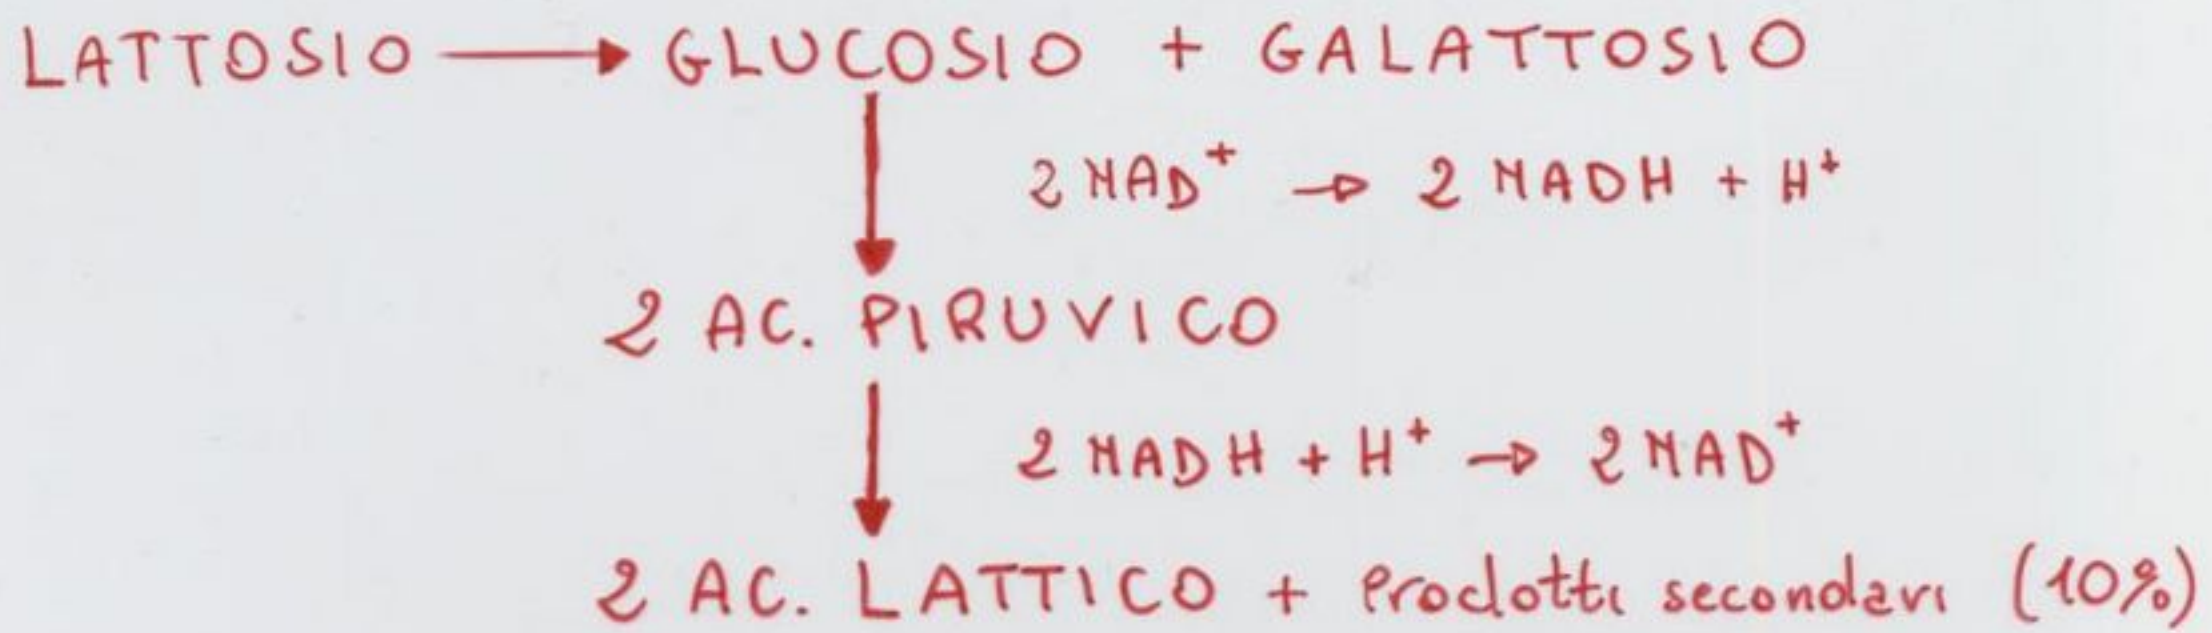 LATTOSIO → GLUCOSIO + GALATTOSIO
2 NAD⁺ → 2 NADH + H⁺
2 AC. PIRUVICO
2 NADH + H⁺ → 2 NAD⁺
2 AC. LATTICO + Prodotti secondari (10%)